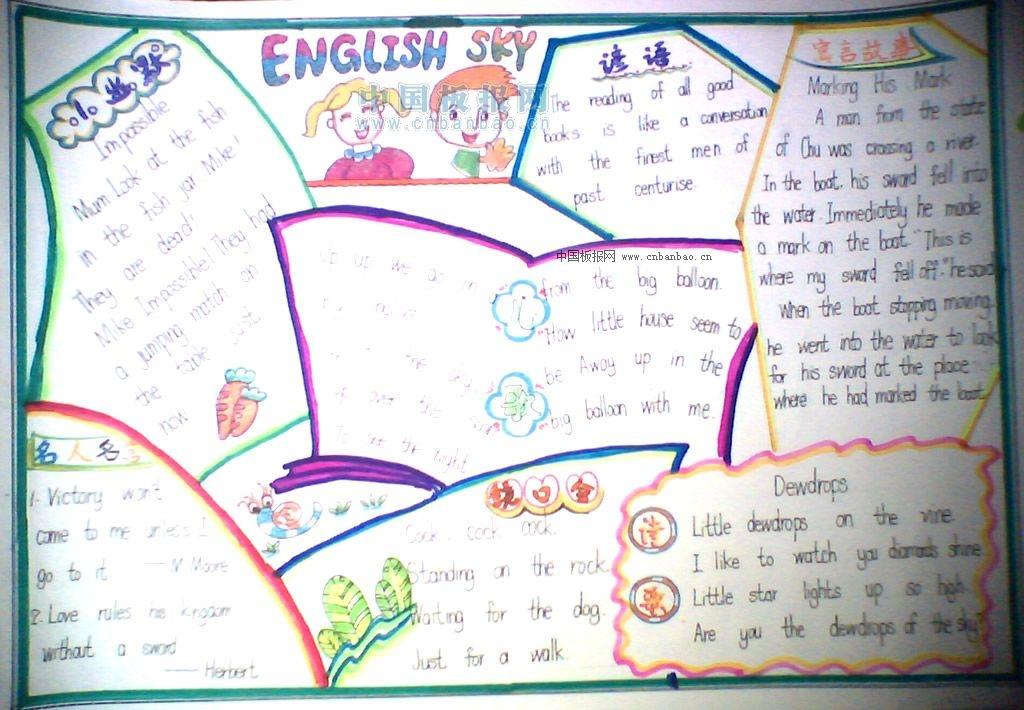 ENGLISH SKY
中国板报网
www.cnbanbao.cn
小幽默
Impossible
Mum Look at the fish
in the fish jar Mike!
They are dead'
Mike Impossible! They had
a jumping match on
the table just
now
谚语
The reading of all good
books is like a conversation
with the finest men of
past centurise.
寓言故事
Marking His Mark
A man from the state
of Chu was crossing a river.
In the boat, his sword fell into
the water. Immediately he made
a mark on the boat. "This is
where my sword fell off." he said
when the boat stopping moving.
he went into the water to look
for his sword at the place
where he had marked the boat.
Up up we go
中国板报网 www.cnbanbao.cn
儿
歌
from the big balloon.
How little house seem to
be Away up in the
big balloon with me.
名人名言
1. Victory won't
come to me unless I
go to it —— M Moore
2. Love rules his kingdom
without a sword
—— Herbert
绕口令
Cock. cock cock.
Standing on the rock.
Waiting for the dog.
Just for a walk.
诗
歌
Dewdrops
Little dewdrops on the vine.
I like to watch you diamonds shine.
Little star lights up so high.
Are you the dewdrops of the sky?